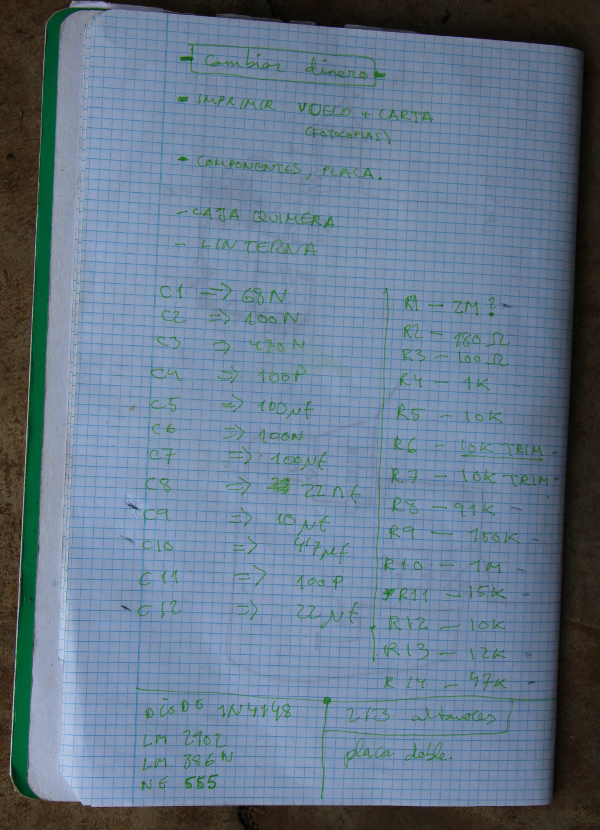 - Cambiar dinero -
- IMPRIMIR VUELO + CARTA
(FOTOCOPIAS)
- COMPONENTES, PLACA.
- CAJA QUIMERA
- LINTERNA
C1 => 68N
C2 => 100N
C3 => 470N
C4 => 100P
C5 => 100µf
C6 => 100N
C7 => 100µf
C8 => 22nf
C9 => 10µf
C10 => 47µf
C11 => 100P
C12 => 22µf
R1 - 2M? -
R2 - 180Ω
R3 - 100Ω
R4 - 1K
R5 - 10K
R6 - 10K TRIM -
R7 - 10K TRIM -
R8 - 91K -
R9 - 100K -
R10 - 1M -
R11 - 15K -
R12 - 10K
R13 - 12K -
R14 - 47K -
DIODO 1N4148
LM 2902
LM 386N
NE 555
2/3 altavoces
placa doble.